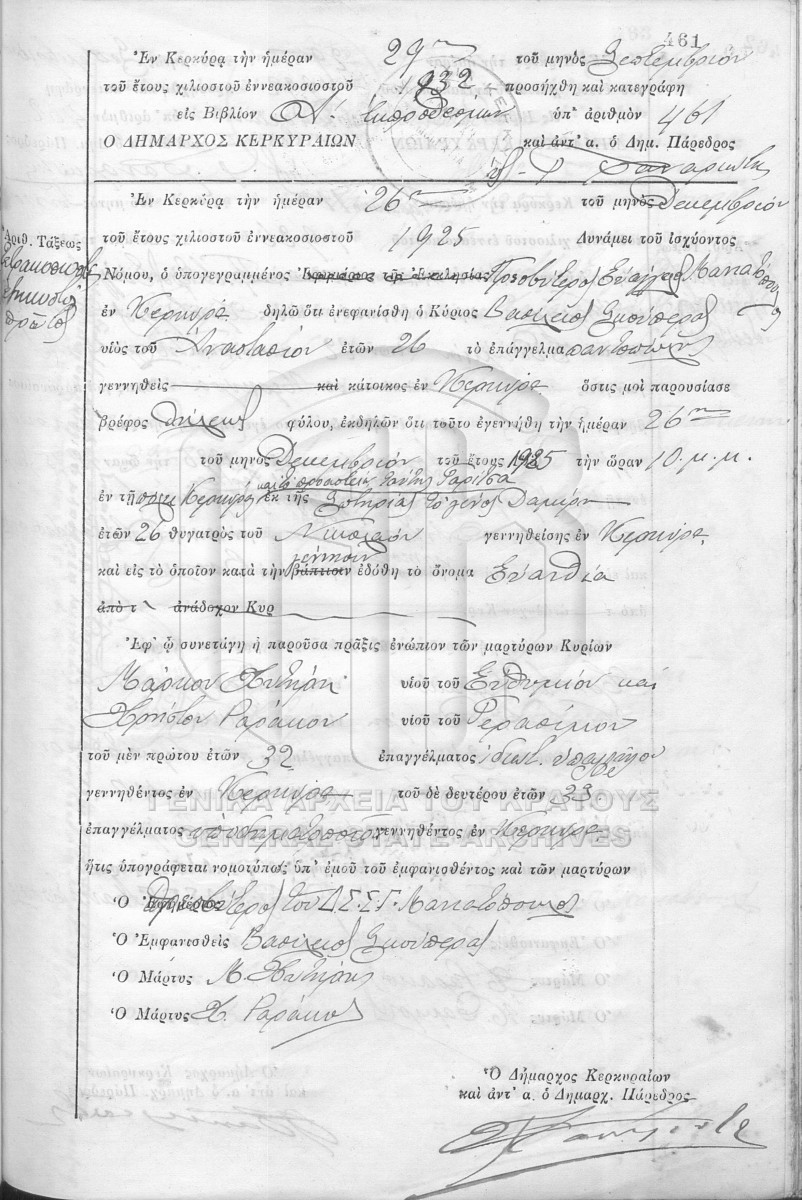 461
Ἐν Κερκύρᾳ τὴν ἡμέραν 29ην τοῦ μηνὸς Σεπτεμβρίου
τοῦ ἔτους χιλιοστοῦ ἐννεακοσιοστοῦ 1932 προσήχθη καὶ κατεγράφη
εἰς Βιβλίον Α′. Ἐκπροθέσμων ὑπ' ἀριθμὸν 461
Ὁ ΔΗΜΑΡΧΟΣ ΚΕΡΚΥΡΑΙΩΝ καὶ ἀντ' α. ὁ Δημ. Πάρεδρος
Ἐν Κερκύρᾳ τὴν ἡμέραν 26ην τοῦ μηνὸς Δεκεμβρίου
τοῦ ἔτους χιλιοστοῦ ἐννεακοσιοστοῦ 1925 Δυνάμει τοῦ ἰσχύοντος
Ἀριθ. Τάξεως
Τετρακόσια
ἑξήκοντα
πρῶτος
Νόμου, ὁ ὑπογεγραμμένος Ἐφημέριος τῆς ἐκκλησίας Πρεσβύτερος
ἐν Κερκύρᾳ δηλῶ ὅτι ἐνεφανίσθη ὁ Κύριος Βασίλειος Σκούπερας
υἱὸς τοῦ Ἀναστασίου ἐτῶν 26 τὸ ἐπάγγελμα παντοπώλης
γεννηθεὶς καὶ κάτοικος ἐν Κερκύρᾳ ὅστις μοὶ παρουσίασε
βρέφος θήλεος φύλου, ἐκδηλῶν ὅτι τοῦτο ἐγεννήθη τὴν ἡμέραν 26ην
τοῦ μηνὸς Δεκεμβρίου τοῦ ἔτους 1925 τὴν ὥραν 10. μ. μ.
καὶ τὸ προάστειον ταύτης Γαρίτσα
ἐν τῇ πόλει Κερκύρας ἐκ τῆς Σωτηρίας τὸ γένος Δαμίρη
ἐτῶν 26 θυγατρὸς τοῦ Νικολάου γεννηθείσης ἐν Κερκύρᾳ
γέννησιν
καὶ εἰς τὸ ὁποῖον κατὰ τὴν βάπτισιν ἐδόθη τὸ ὄνομα Εὐανθία
ἀπὸ τ ἀνάδοχον Κυρ
Ἐφ' ᾧ συνετάγη ἡ παροῦσα πρᾶξις ἐνώπιον τῶν μαρτύρων Κυρίων
Μάρκου Χυτήρη υἱοῦ τοῦ Εὐθυμίου καὶ
Χρήστου Ραράκου υἱοῦ τοῦ Γερασίμου
τοῦ μὲν πρώτου ἐτῶν 32 ἐπαγγέλματος ἰδιωτ. ὑπαλλήλου
γεννηθέντος ἐν Κερκύρᾳ τοῦ δὲ δευτέρου ἐτῶν 33
ἐπαγγέλματος ὑποδηματοποιοῦ γεννηθέντος ἐν Κερκύρᾳ
ἥτις ὑπογράφεται νομοτύπως ὑπ' ἐμοῦ τοῦ ἐμφανισθέντος καὶ τῶν μαρτύρων
Ὁ Ἐφημέριος
Ὁ Ἐμφανισθεὶς Βασίλειος Σκούπερας
Ὁ Μάρτυς Μ. Χυτήρης
Ὁ Μάρτυς Χ. Ραράκος
Ὁ Δήμαρχος Κερκυραίων
καὶ ἀντ' α. ὁ Δημαρχ. Πάρεδρος
ΓΕΝΙΚΑ ΑΡΧΕΙΑ ΤΟΥ ΚΡΑΤΟΥΣ
GENERAL STATE ARCHIVES